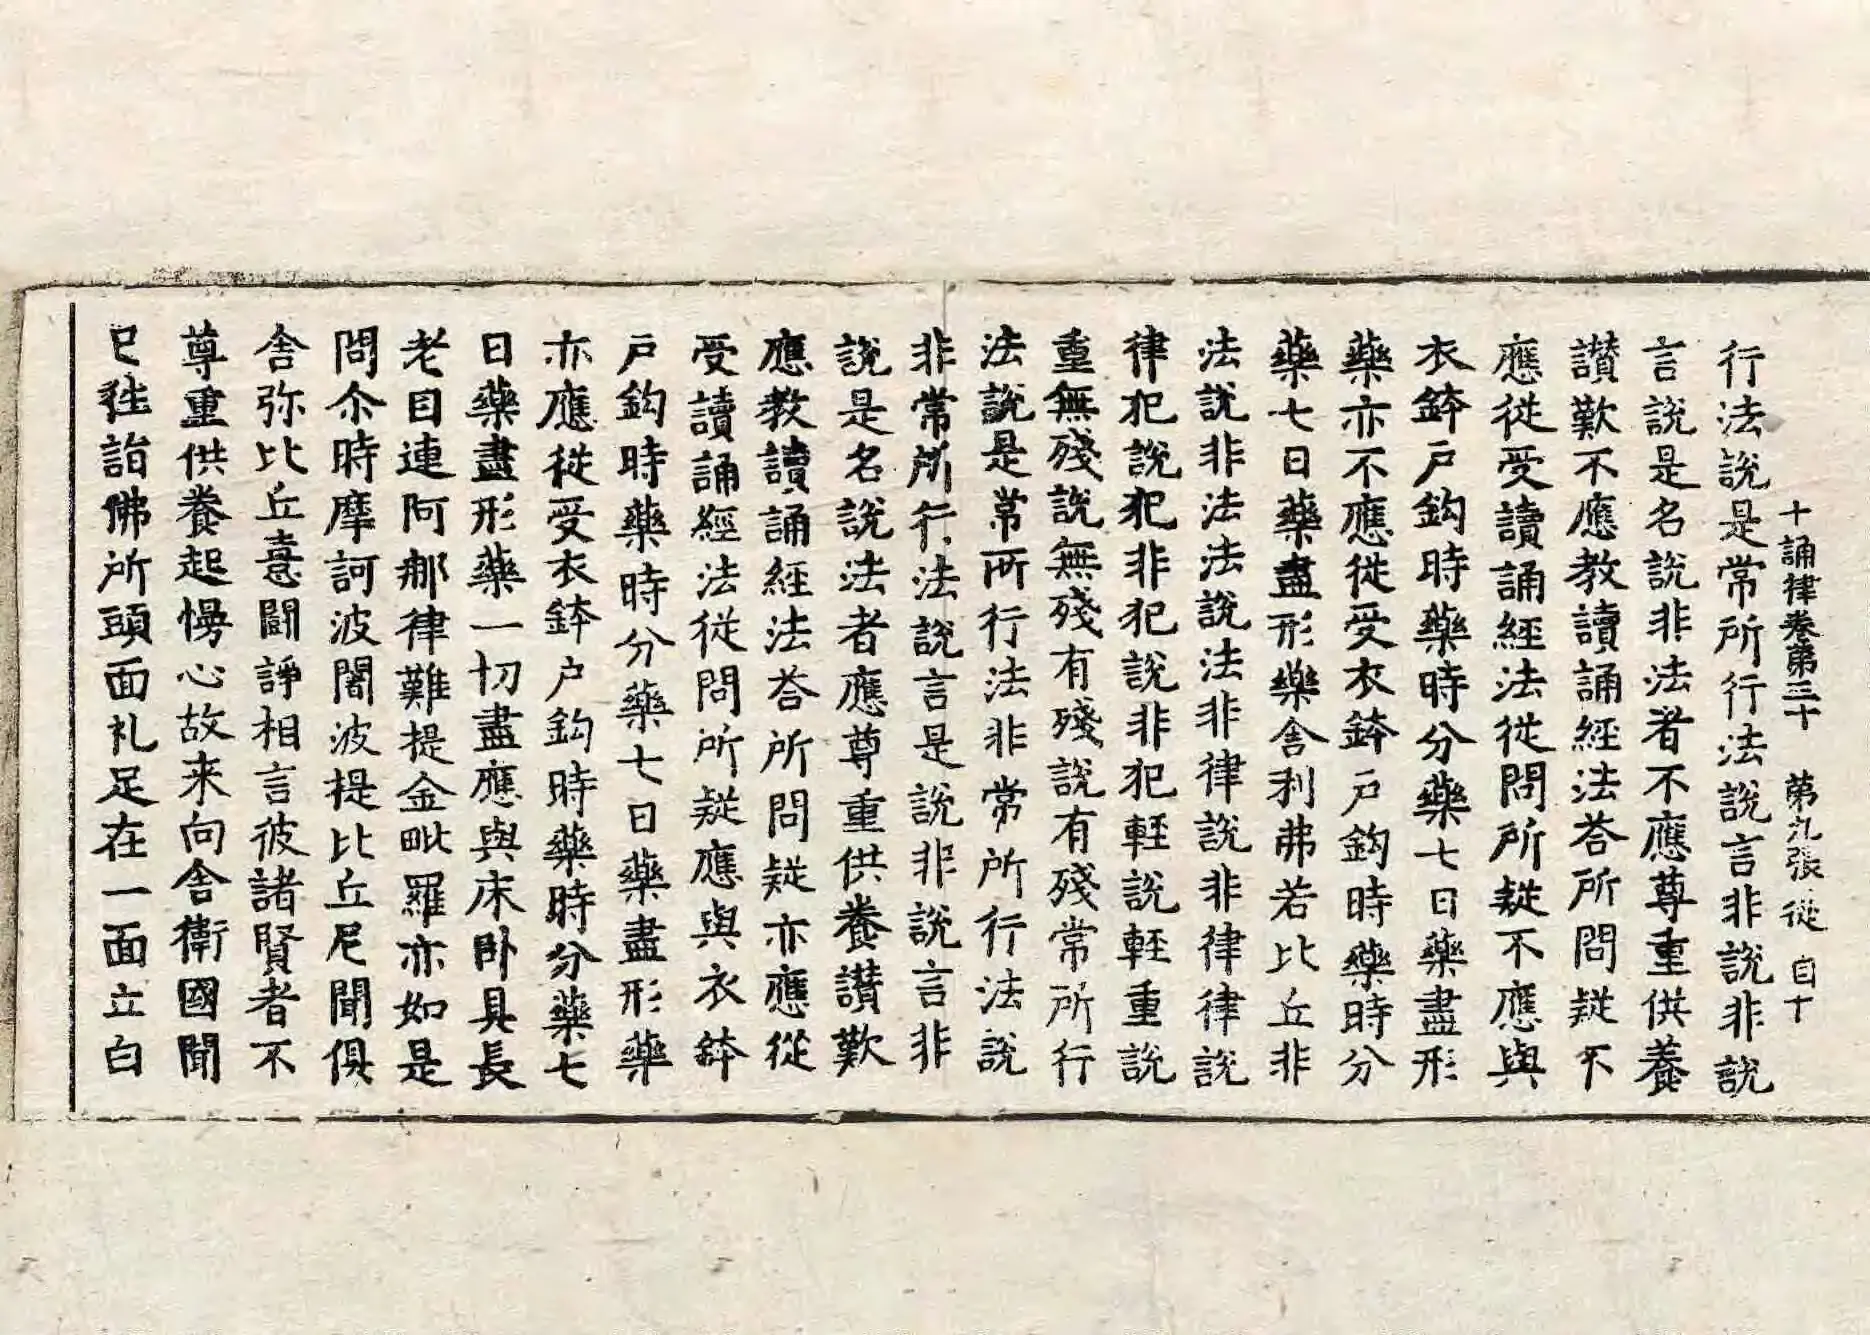 十誦律卷第三十　第九張　從　自十
行法說是常所行法說言非說非說
言說是名說非法者不應尊重供養
讃歎不應教讀誦經法荅所問疑不
應從受讀誦經法從問所疑不應與
衣鉢戶鈎時藥時分藥七日藥盡形
藥亦不應從受衣鉢戶鈎時藥時分
藥七日藥盡形藥舍利弗若比丘非
法說非法法說法非律說非律律說
律犯說犯非犯說非犯輕說輕重說
重無殘說無殘有殘說有殘常所行
法說是常所行法非常所行法說
非常所行法說言是說非說言非
說是名說法者應尊重供養讃歎
應教讀誦經法荅所問疑亦應從
受讀誦經法從問所疑應與衣鉢
戶鈎時藥時分藥七日藥盡形藥
亦應從受衣鉢戶鈎時藥時分藥七
日藥盡形藥一切盡應與床卧具長
老目連阿那律難提金毗羅亦如是
問尒時摩訶波闍波提比丘尼聞俱
舍弥比丘憙鬪諍相言彼諸賢者不
尊重供養起慢心故来向舍衛國聞
已往詣佛所頭面礼足在一面立白